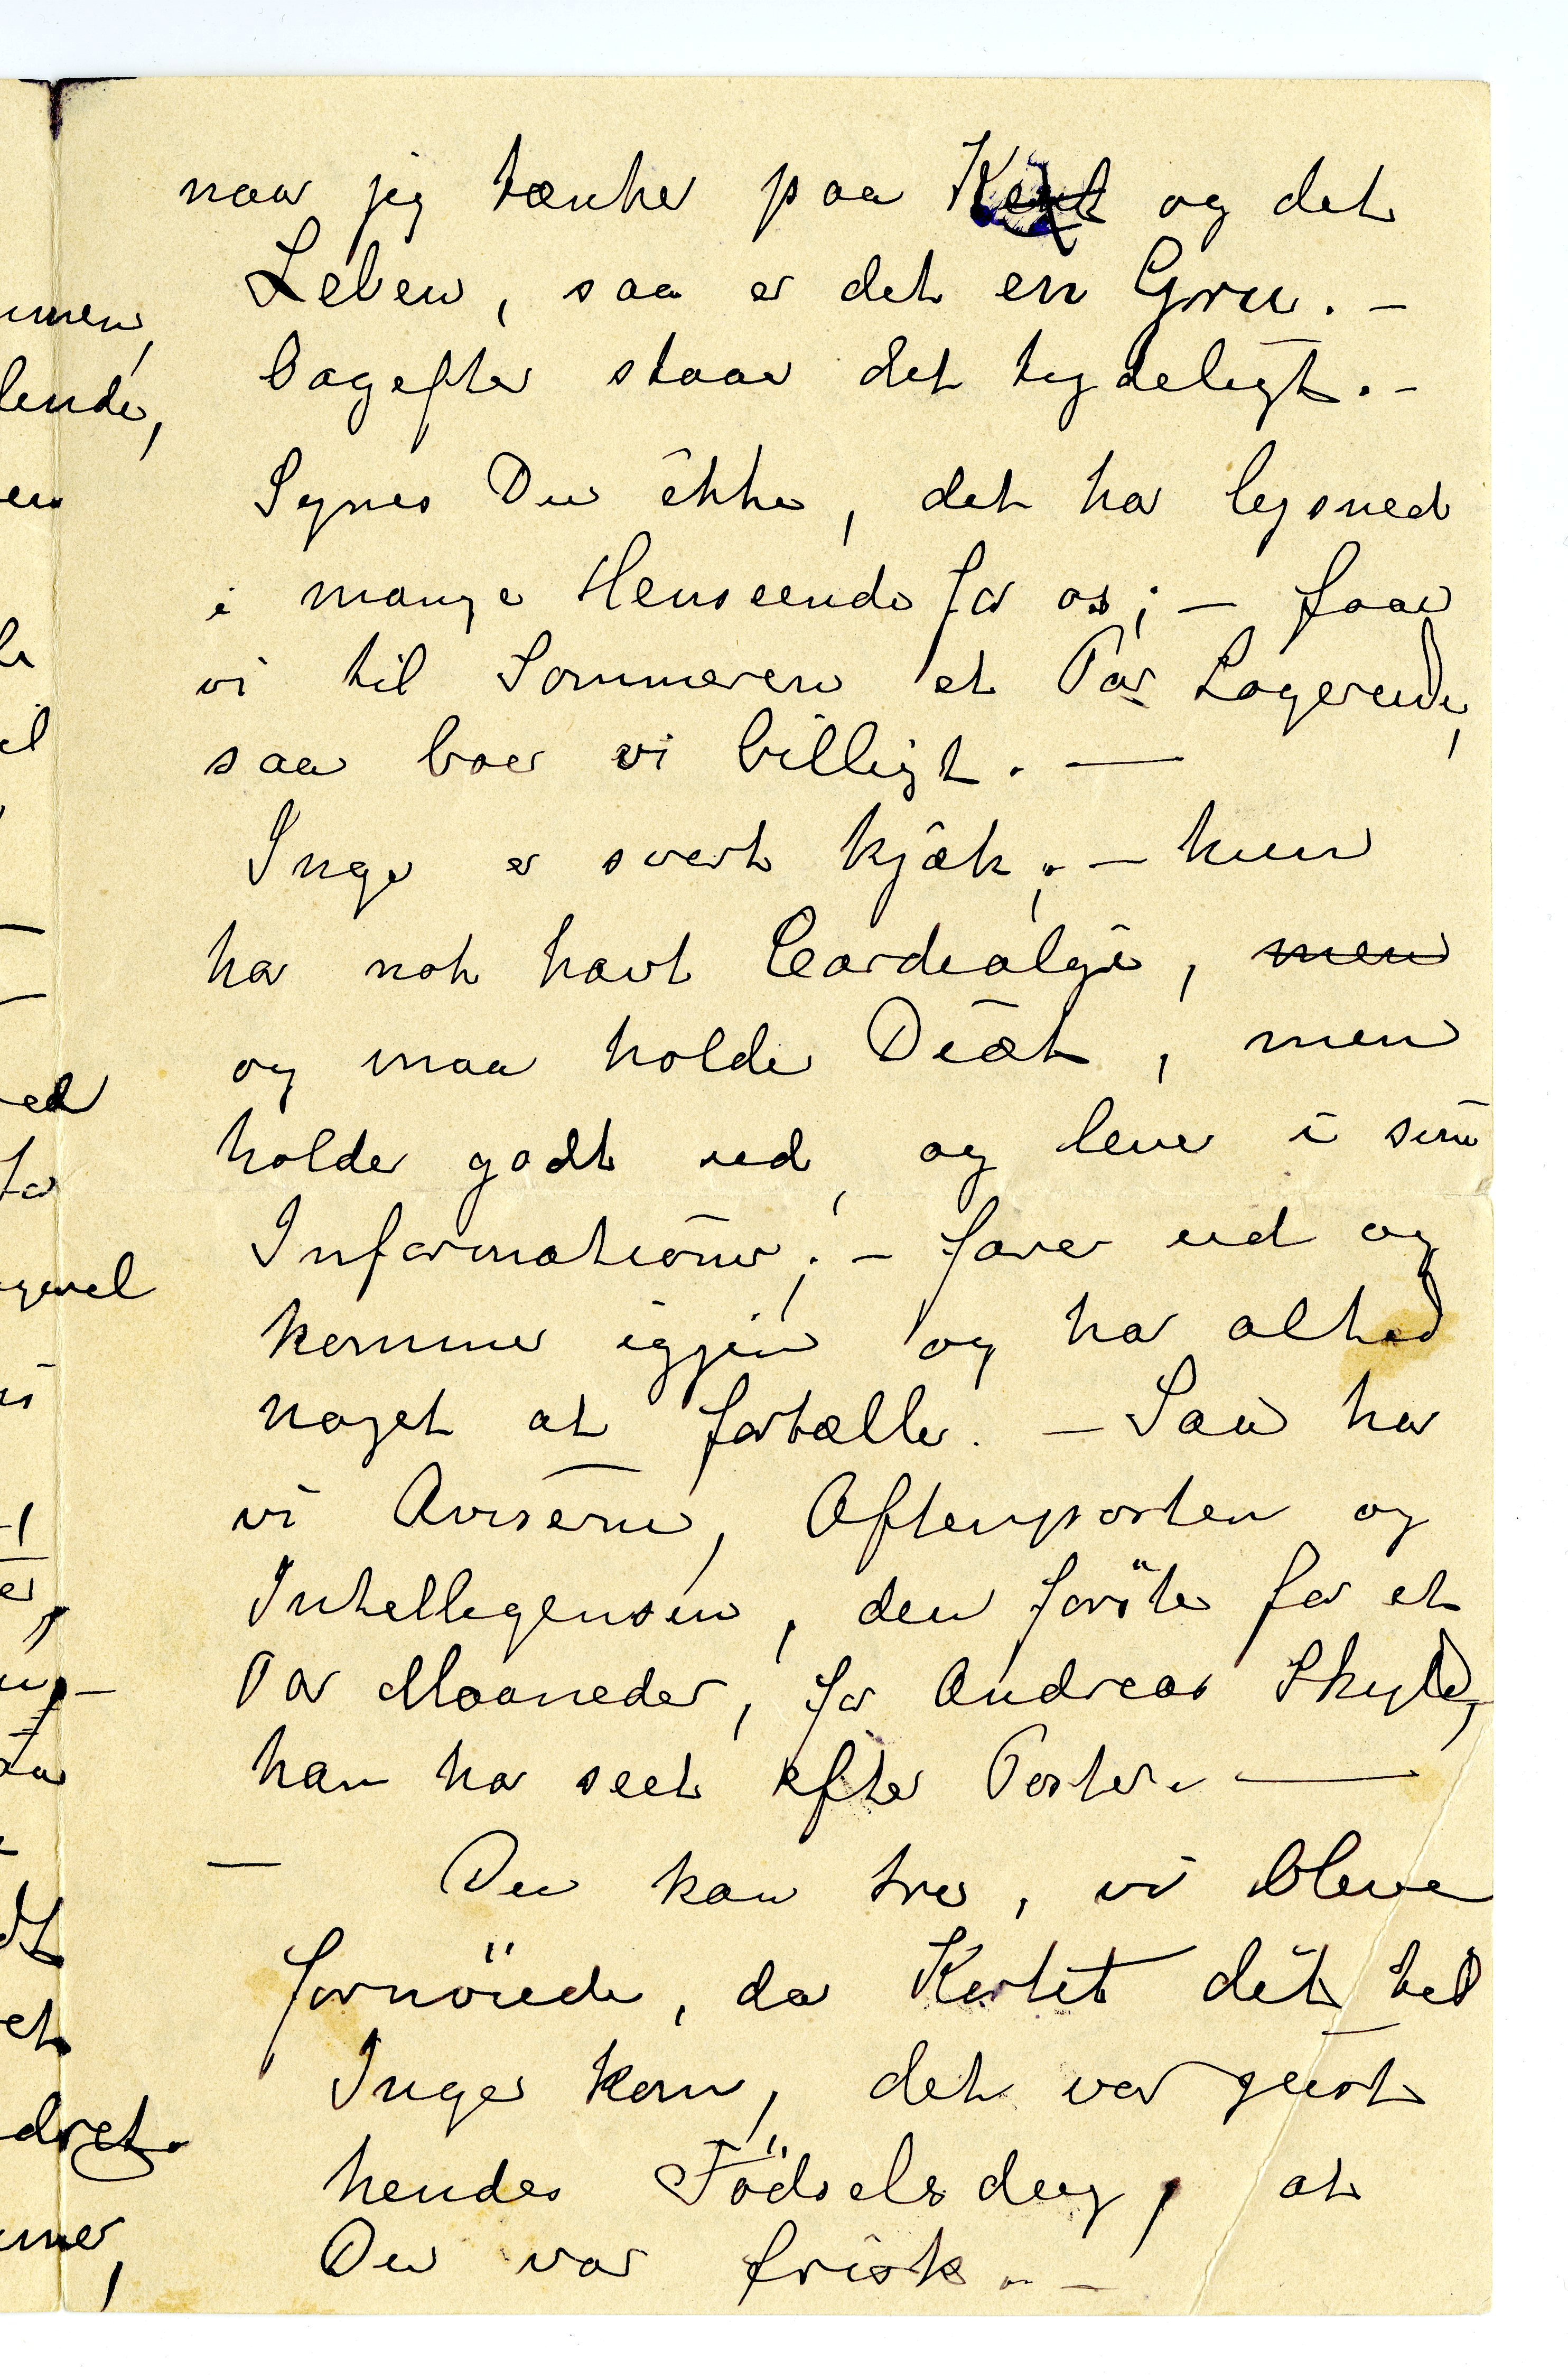 naar jeg tænker paa og det
Leben, saa er det en Gru. –
bagefter staar det tydeligt. –
Synes Du ikke, det har lysned
i mange Henseender for os; – faar
vi til Sommeren et Par Logerende,
saa boer vi billigt. –
Inga er svært kjæk; – hun
har nok havt Cardialgi, men
og maa holde Diæt, men
holder godt ud, og lever i sine
Informationer; – farer ud og
kommer igjen og har altid
noget at fortælle. – Saa har
vi Aviserne, Aftenposten og
Intelligensen, den förste for et
Par Maaneder, for Andreas Skyld,
han har seet efter Poster. –
– Du kan tro, vi bleve
fornöiede, da Kortet dit til
Inga kom, det var just
hendes Födselsdag, at
Du var frisk. –